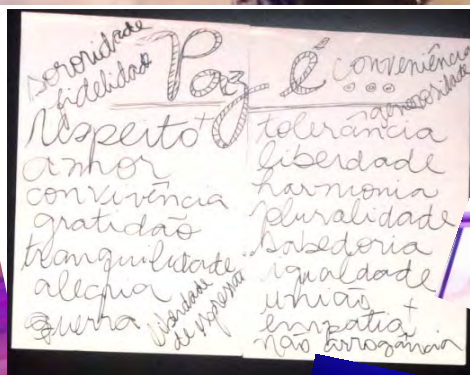 sororidade
fidelidade
Paz É ...
conveniência
generosidade
respeito +
amor
convivência
gratidão
tranquilidade
alegria
guerra
liberdade
de expressão
tolerância
liberdade
harmonia
pluralidade
sabedoria
igualdade
união +
empatia
não arrogância